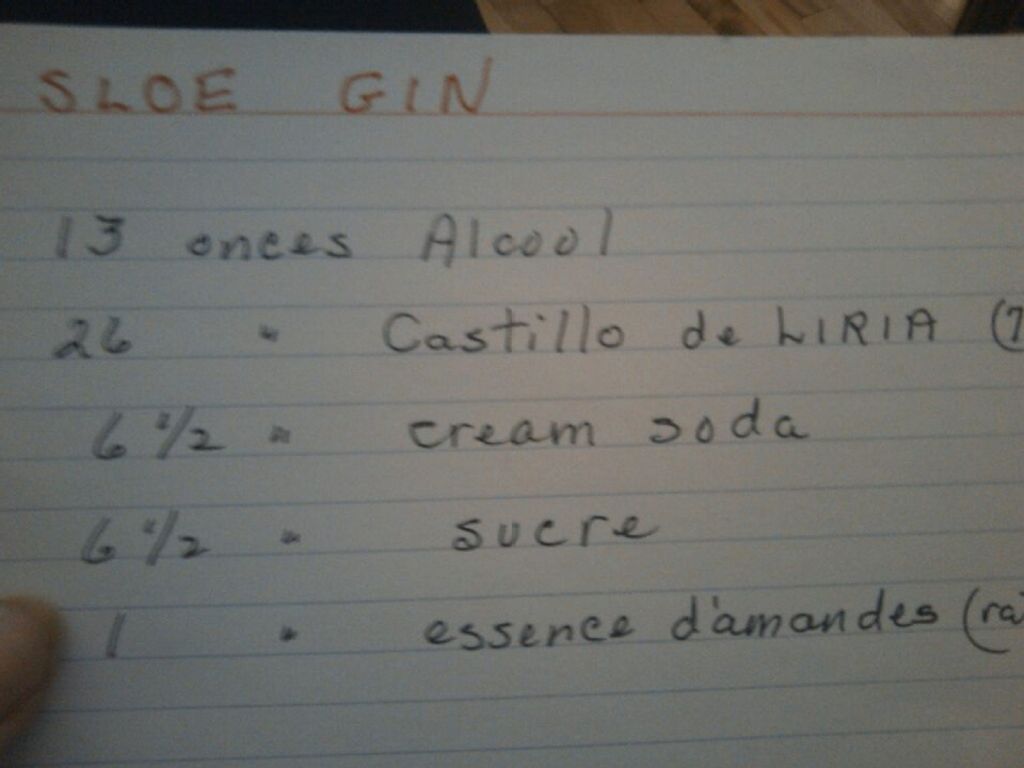 SLOE GIN
13 onces Alcool
26 " Castillo de LIRIA
6 1/2 " cream soda
6 1/2 " sucre
1 " essence d'amandes